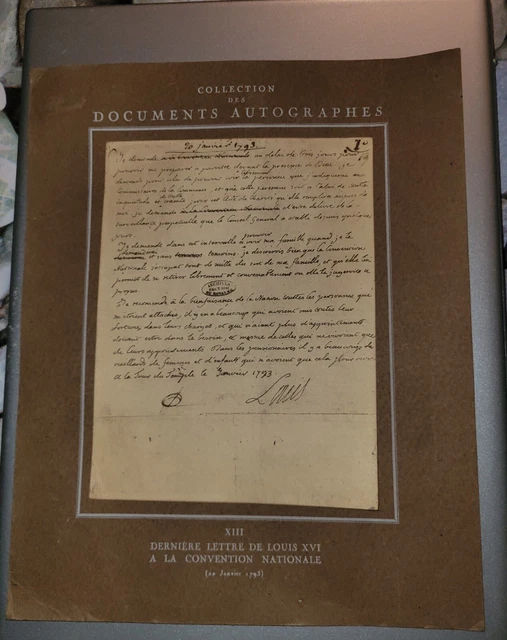 COLLECTION
DES
DOCUMENTS AUTOGRAPHES
20 Janvier 1793
Je demande un délai de trois jours pour
pouvoir me préparer à paroitre devant la présence de Dieu. je
demande pour cela de pouvoir voir la personne que j'indiquerai aux
Commissaires de la Commune, et que cette personne soit à l'abri de toute
inquiétude et de toute crainte pour cet acte de charité qu'elle remplira auprès de
moi. je demande d'être délivré de la
surveillance perpétuelle que le Conseil Général a établi depuis quelques
jours.
Je demande dans cet intervalle à pouvoir voir ma famille quand je le
demanderai et sans témoins. je désirerois bien que la Convention
Nationale s'occupat tout de suite du sort de ma famille, et qu'elle lui
permit de se retirer librement et convenablement ou elle le jugeroit à
propos.
Je recommande à la bienfaisance de la Nation toutes les personnes qui
m'étoient attachées, il y en a beaucoup qui avoient mis toute leur
fortune dans leurs charges, et qui n'aiant plus d'appointements
doivent estre dans le besoin, et mesme de celles qui ne vivoient que
de leurs appointements. dans les pensionnaires il y a beaucoup de
vieillards de femmes et d'enfants qui n'avoient que cela pour vivre
à la Tour du Temple le Janvier 1793.
Louis
XIII
DERNIÈRE LETTRE DE LOUIS XVI
A LA CONVENTION NATIONALE
(20 Janvier 1793)